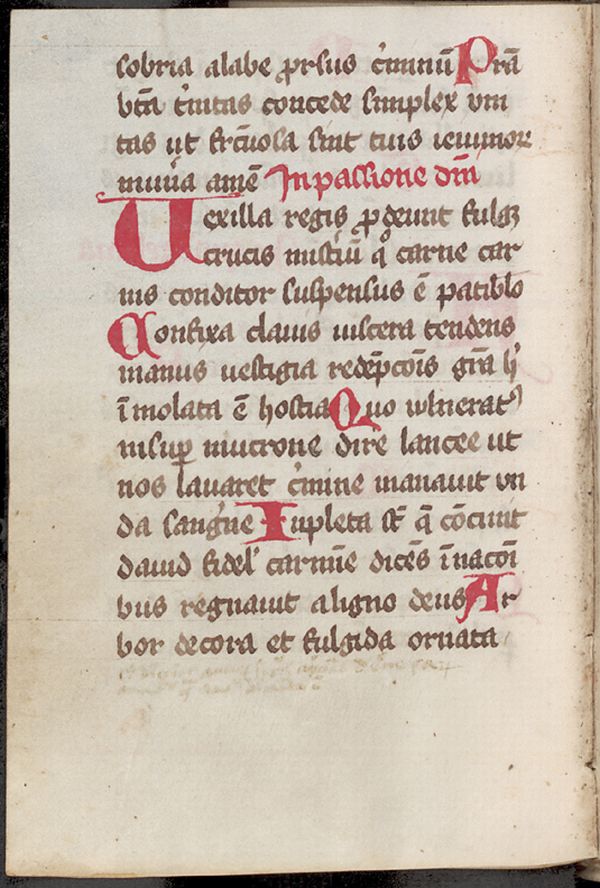 sobria alabe ꝓrsus c̓iminū Prā
bt̄a t̓initas concede simplex vni
tas ut fruc̄uosa sint tuis ieiunioꝝ
mun̄a amē In passione dn̄i
Uexilla regis ꝓdeunt fulgꝫ
crucis mist̓iū qͦ carne car
nis conditor suspensus ē patib̓lo
Confixa clauis viscera tendens
manus uestigia redēpcōis gr̄a h̓
īmolata ē hostia Quo vulneratꝰ
insuꝑ mucrone dire lancee ut
nos lauaret c̓mine manauit vn
da sangn̄e Inpleta st̄ q̄ cōcinit
dauid fidel̓ carmīe dicēs ī nacōi
bus regnauit a ligno deus Ar
bor decora et fulgida ornata